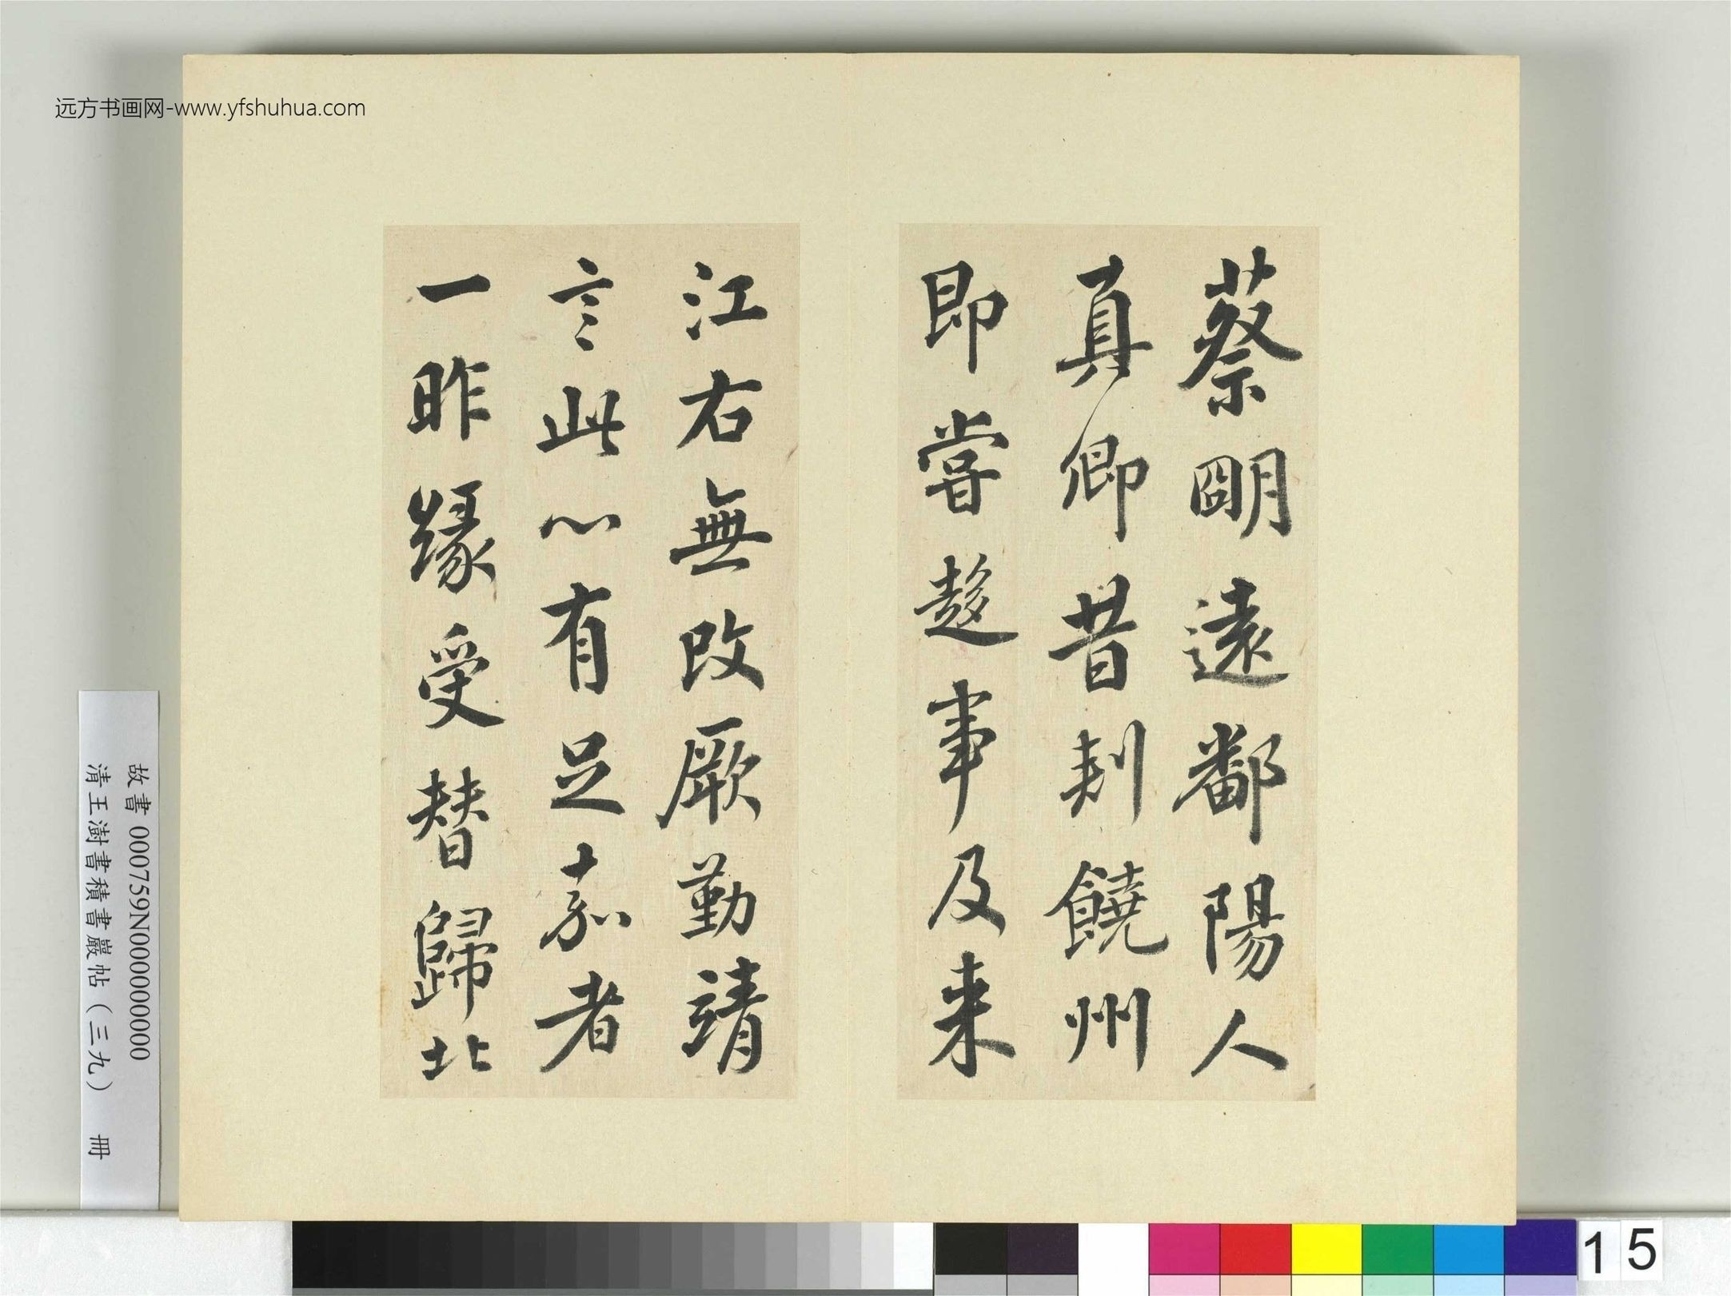 远方书画网-www.yfshuhua.com
蔡明遠鄱陽人
真卿昔刾饒州
即嘗趍事及来
江右無改厥勤靖
言此心有足嘉者
一昨緣受替歸北
故書 000759N000000000
清王澍書積書巖帖(三九) 冊
15